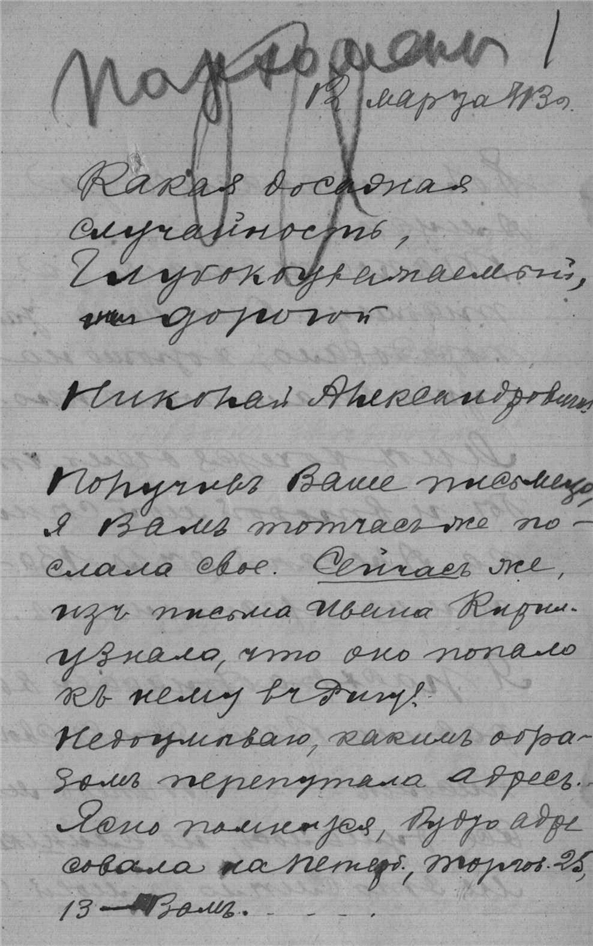 Пархоменко 1
12 марта 913 г.
Какая досадная
случайность,
Глубокоуважаемый,
дорогой
Николай Александрович!
Получивъ Ваше письмецо,
я Вамъ тотчасъ же по-
слала свое. Сейчасъ же,
изъ письма Ивана Кирил.
узнала, что оно попало
къ нему въ Ригу!
Недоумѣваю, какимъ обра-
зомъ перепутала адресъ.
Ясно помнится, будто адре
совала на Петерб., Торгов. 25,
13 — Вамъ. . . . . .